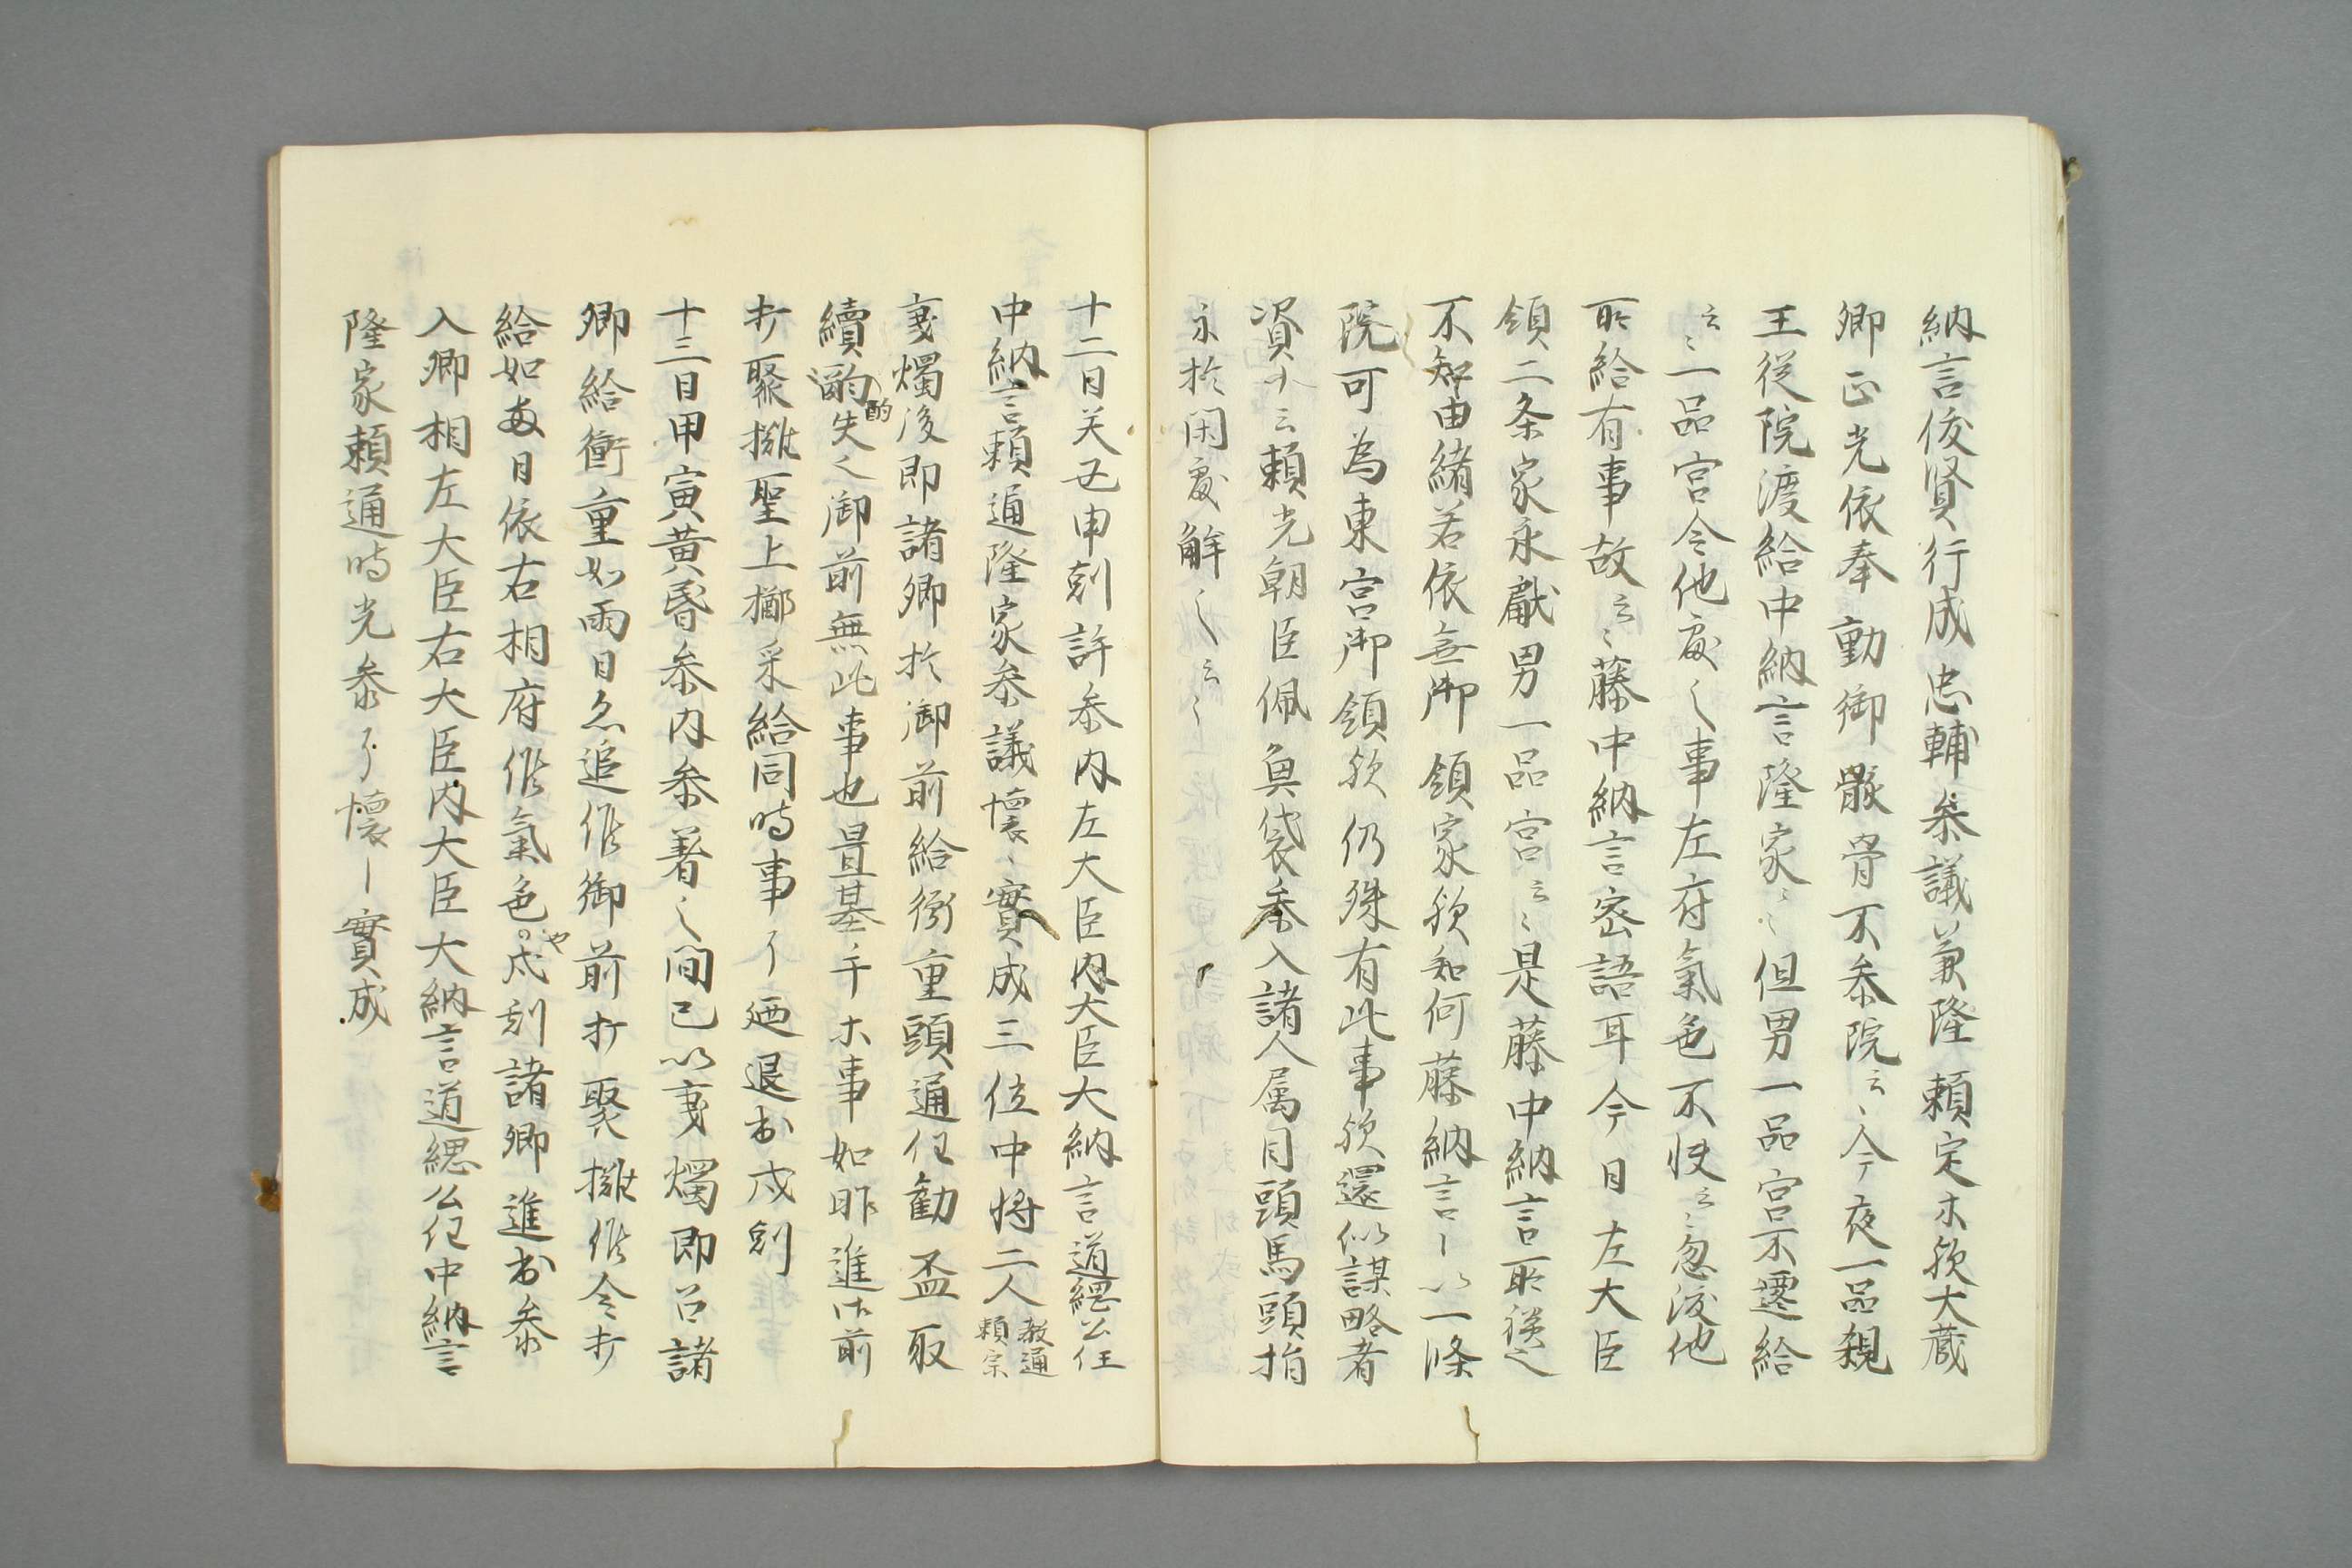 納言俊賢行成忠輔参議兼隆頼定ホ欤大蔵
卿正光依奉動御骸骨不参院云〻今夜一品親
王従院渡給中納言隆家〻〻但男一品宮不遷給
云〻一品宮令他處之事左府氣色不快云〻忽渡他
所給有事故云〻藤中納言密語耳今日左大臣
領二条家永献男一品宮云〻是藤中納言所談之
不知由緒若依無御領家欤如何藤納言〡以一條
院可為東宮御領欤仍殊有此事欤還似謀略者
資〻云頼光朝臣佩魚袋参入諸人属目頭馬頭指
示於閑處解之云〻
十二日癸丑申剋許参内左大臣内大臣大納言道綱公任
中納言頼通隆家参議懐〻實成三位中将二人教通頼宗
秉燭後即諸卿於御前給衝重頭通任勧盃取
續酌失之御前無此事也置碁手ホ事如昨進御前
打聚攤聖上擲采給同時事了廼退出戌剋
十三日甲寅黄昏参内参著之間已以秉燭即召諸
卿給衝重如両日久追候御前打聚攤候令打
給如每日依右相府候氣色戌刻諸卿進出参
入卿相左大臣右大臣内大臣大納言道綱公任中納言
隆家頼通時光参了懐〡實成